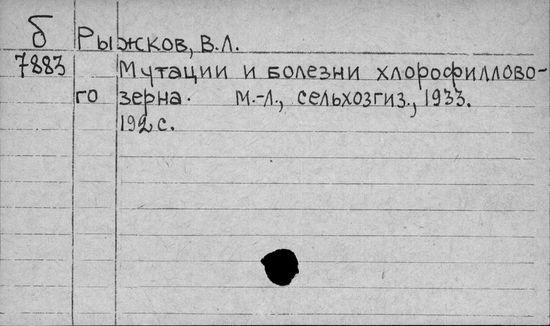 б Рыжков, В.Л.
7883 Мутации и болезни хлорофиллово-
го зерна. М.-Л., сельхозгиз., 1933.
192 с.